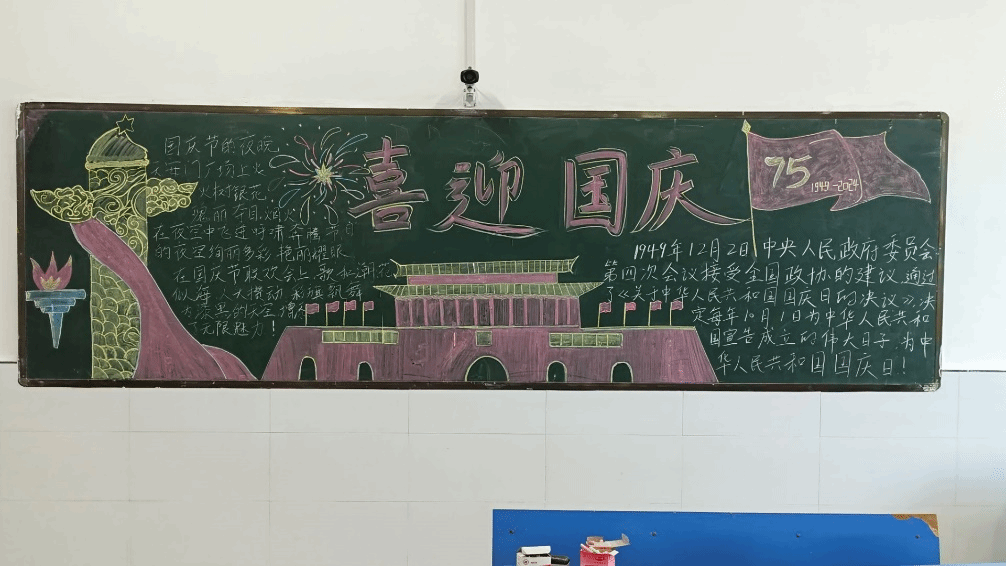 喜迎国庆
国庆节的夜晚
天安门广场上火
火树银花
绚丽夺目,烟火
在夜空中飞迸呼啸奔腾 节日
的夜空绚丽多彩 艳丽耀眼
在国庆节联欢会上 歌如潮 花
似海 人大攒动 彩旗飘舞
为漆黑的天空增添
了无限魅力!
75
1949-2024
1949年12月2日,中央人民政府委员会
第四次会议接受全国政协的建议,通过
了《关于中华人民共和国国庆日的决议》,决
定每年10月1日为中华人民共和
国宣告成立的伟大日子,为中
华人民共和国国庆日!